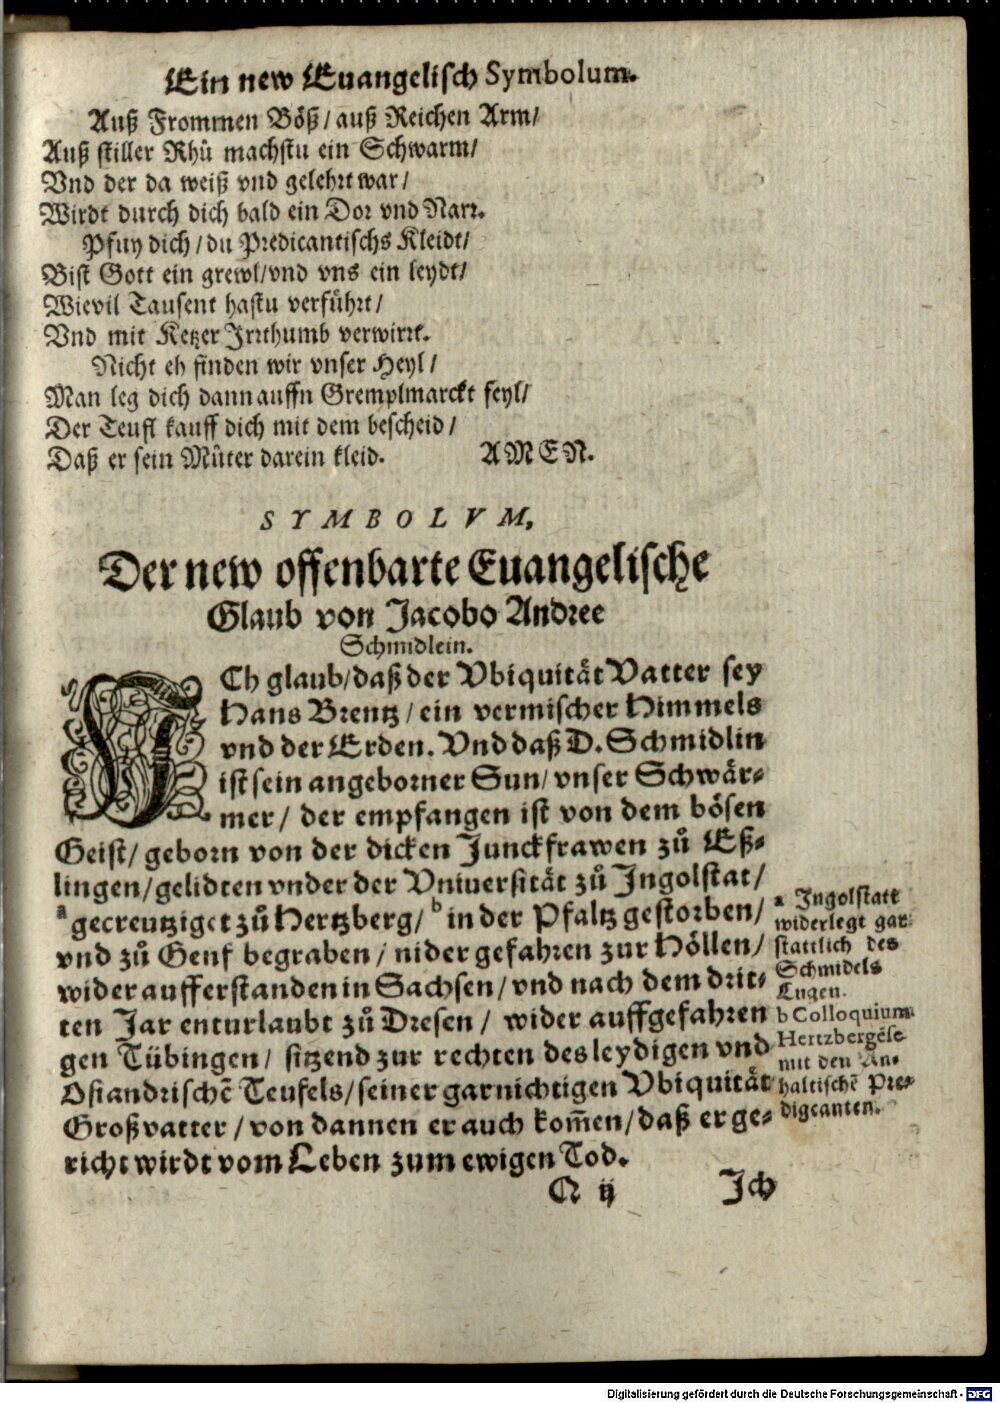 Ein new Euangelisch Symbolum.
Auß Frommen Böß / auß Reichen Arm /
Auß stiller Rhů machstu ein Schwarm /
Vnd der da weiß vnd gelehrt war /
Wirdt durch dich bald ein Dor vnd Narr.
Pfuy dich / du Predicantischs Kleidt /
Bist Gott ein grewl / vnd vns ein leydt /
Wievil Tausent hastu verführt /
Vnd mit Ketzer Irrthumb verwirrt.
Nicht eh finden wir vnser Heyl /
Man leg dich dann auffn Gremplmarckt feyl /
Der Teufl kauff dich mit dem bescheid /
Daß er sein Můter darein kleid. AMEN.
SYMBOLVM,
Der new offenbarte Euangelische
Glaub von Jacobo Andree
Schmidlein.
ICh glaub / daß der Vbiquitåt Vatter sey
Hans Brentz / ein vermischer Himmels
vnd der Erden. Vnd daß D. Schmidlin
ist sein angeborner Sun / vnser Schwår⸗
mer / der empfangen ist von dem bösen
Geist / geborn von der dicken Junckfrawen zů Eß⸗
lingen / gelidten vnder der Vniuersitåt zů Ingolstat /
a gecreutziget zů Hertzberg / b in der Pfaltz gestorben /
vnd zů Genf begraben / nider gefahren zur Höllen /
wider aufferstanden in Sachsen / vnd nach dem drit⸗
ten Jar enturlaubt zů Dresen / wider auffgefahren
gen Tübingen / sitzend zur rechten des leydigen vnd
Osiandrischē Teufels / seiner garnichtigen Vbiquitåt
Großvatter / von dannen er auch kom̄en / daß er ge⸗
richt wirdt vom Leben zum ewigen Tod.
a Ingolstatt
widerlegt gar
stattlich des
Schmidels
Lugen.
b Colloquium
Hertzbergēse
mit den An⸗
haltischē Pre⸗
digcanten.
N ij Ich
Digitalisierung gefördert durch die Deutsche Forschungsgemeinschaft - DFG